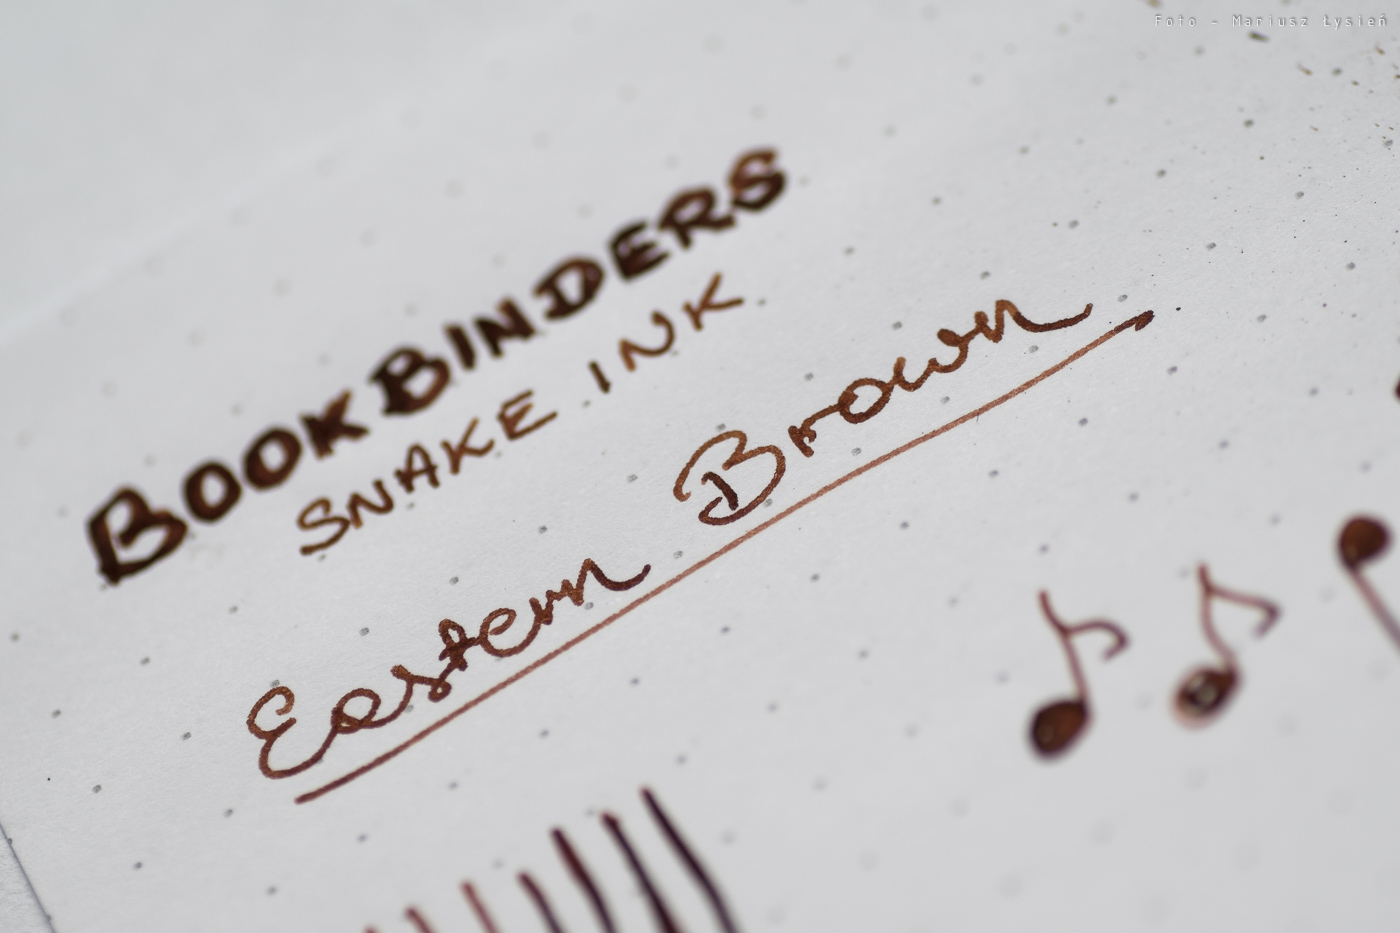 Foto - Mariusz Łysień
BOOKBINDERS
SNAKE INK
Eastern Brown